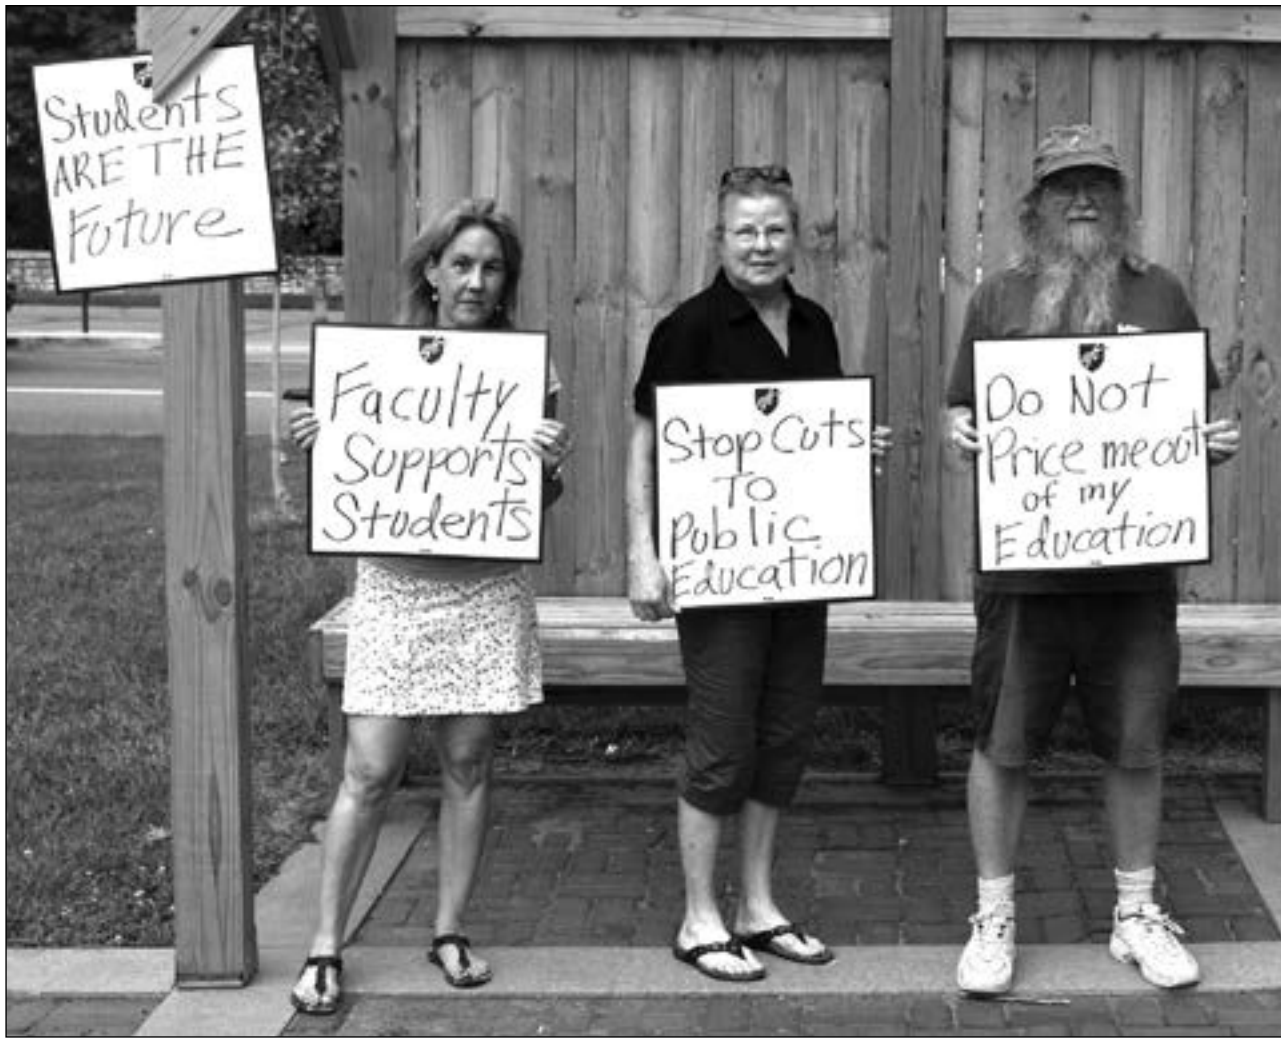 Students
ARE THE
Future
Faculty
Supports
Students
Stop Cuts
To
Public
Education
Do Not
Price me out
of my
Education